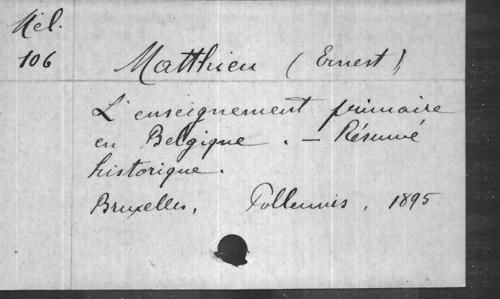 Mél.
106
Matthieu (Ernest)
L'enseignement primaire
en Belgique. — Résumé
historique.
Bruxelles, Polleunis, 1895